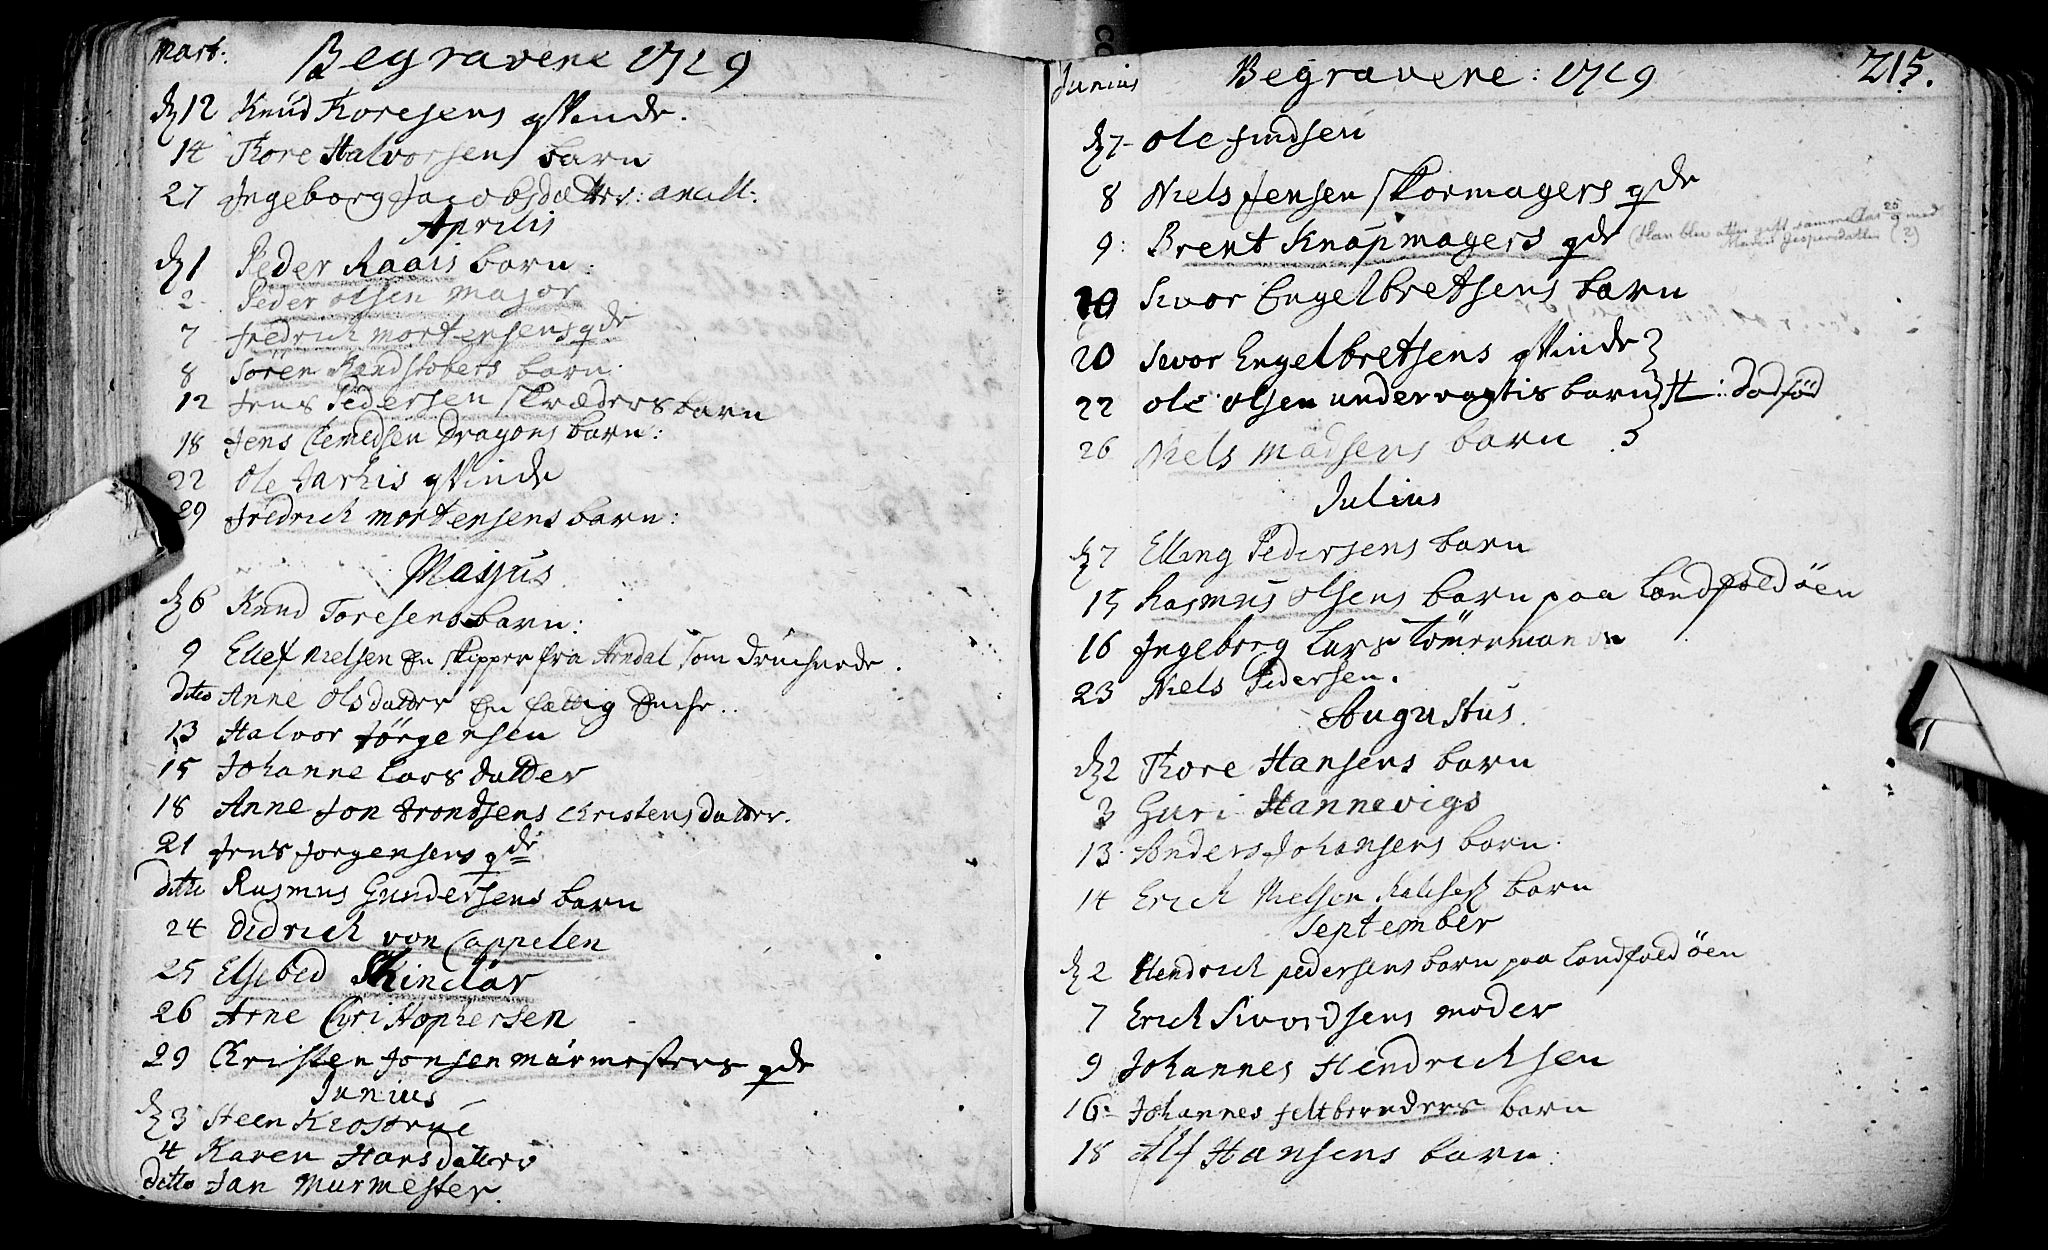 Mart: Begravene 1719
dn 12 Knud Thoresens qvinde.
14 Thore Halvorsens barn
27 Ingeborg Jacobsdatter:
Aprilis
dn 1 Peder Raais barn:
2 Peder Olsen Major
7 Fredrich Mortensens qde
8 Sören barn.
12 Jens Pedersen Skræders barn
18 Jens Clemedsen Dragons barn:
22 Ole qvinde
29 Fredrich Mortensens barn:
Majus
dn 6 Knud Toresens barn:
9 Ellef Nielsen en Skipper fra Arndal som druchnede.
dito Anne Olsdatter en fattig enche..
13 Halvor Jörgensen
15 Johanne Lars datter
18 Anne Jon Trondsens Christensdatter.
21 Jens Jorgensens qde
ditto Rasmus Gundersens barn
24 Didrich von Cappelen
25 Elsebed Skinclár
26 Arne Christophersen
29 Christen Jonsen Múrmesters qde
Junius
dn 3 Steen
4 Karen Hansdatters
ditto Jan Murmester.
Junius Begravene: 1719 215.
dn 7 Ole Findsen
8 Niels Jensen Skomagers qde
9: Brent Knapmagers qde (Han blev atter gift samme Aar 25/9 med Maren Jespersdatter (?)
10 Sivor Engelbretsens barn
20 Sivor Engelbretsens qvinde
22 Ole Olsen undervagtis barn H: dödföd
26 Niels Madsens barn
Julius
dn 7 Elling Pedersens barn
15 Rasmus Olsens barn paa Landfaldöen
16 Ingeborg Lars Tömermands
23 Niels Pedersen.
Augustus.
dn 2 Thore Hansens barn
3 Guri Hannevigs
13 Anders Johansens barn.
14 Erich Nielsen barn
September
dn 2 Hendrich Pedersens barn paa Landfaldöen
7 Erich Sivordsens moder
9 Johannes Hendrichsen
16: Johannes Feltbereders barn
18 Alf Hansens barn: